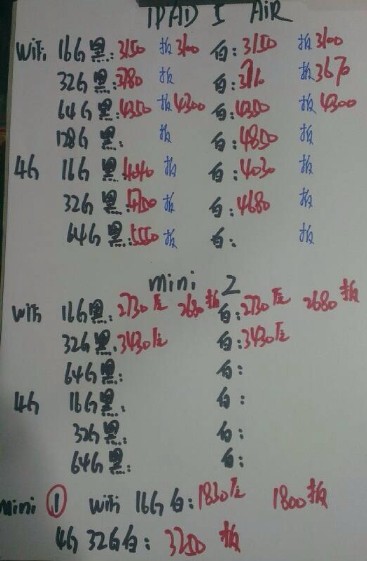 IPAD 5 AIR
WiFi 16G黑:3150 板3100 白:3150 板3100
32G黑:3780 板 白: 板3670
64G黑:4350 板4300 白:4350 板4300
128G黑: 板 白:4850 板
4G 16G黑:4040 板 白:4030 板
32G黑:4700 板 白:4680 板
64G黑:5550 板 白: 板
mini 2
WiFi 16G黑:2730 2680板 白:2730 2680板
32G黑:3430 白:3430
64G黑: 白:
4G 16G黑: 白:
32G黑: 白:
64G黑: 白:
mini ① WiFi 16G白:1830 1800板
4G 32G白:3250 板